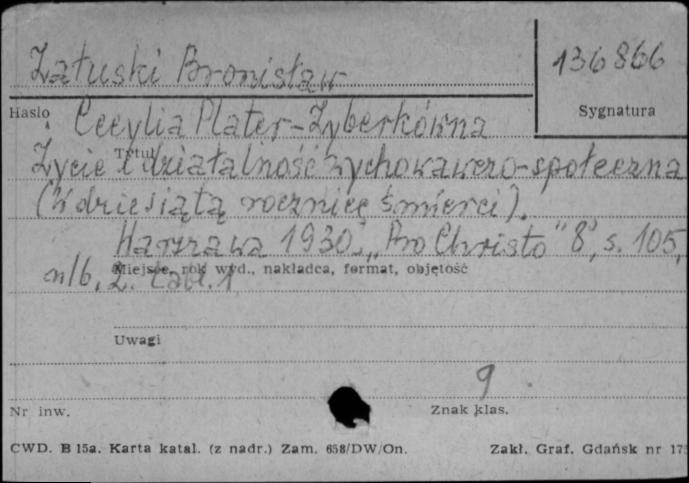 Załuski Bronisław
136866
Hasło
Sygnatura
Cecylia Plater-Zyberkówna
Tytuł
Życie i działalność wychowawczo-społeczna
(W dziesiątą rocznicę śmierci).
Warszawa 1930. „Pro Christo" 8°, s. 105,
Miejsce, rok wyd., nakładca, format, objętość
nlb. 2. tabl. 1
Uwagi
9
Nr inw.
Znak klas.
CWD. B 15a. Karta katal. (z nadr.) Zam. 658/DW/On.
Zakł. Graf. Gdańsk nr